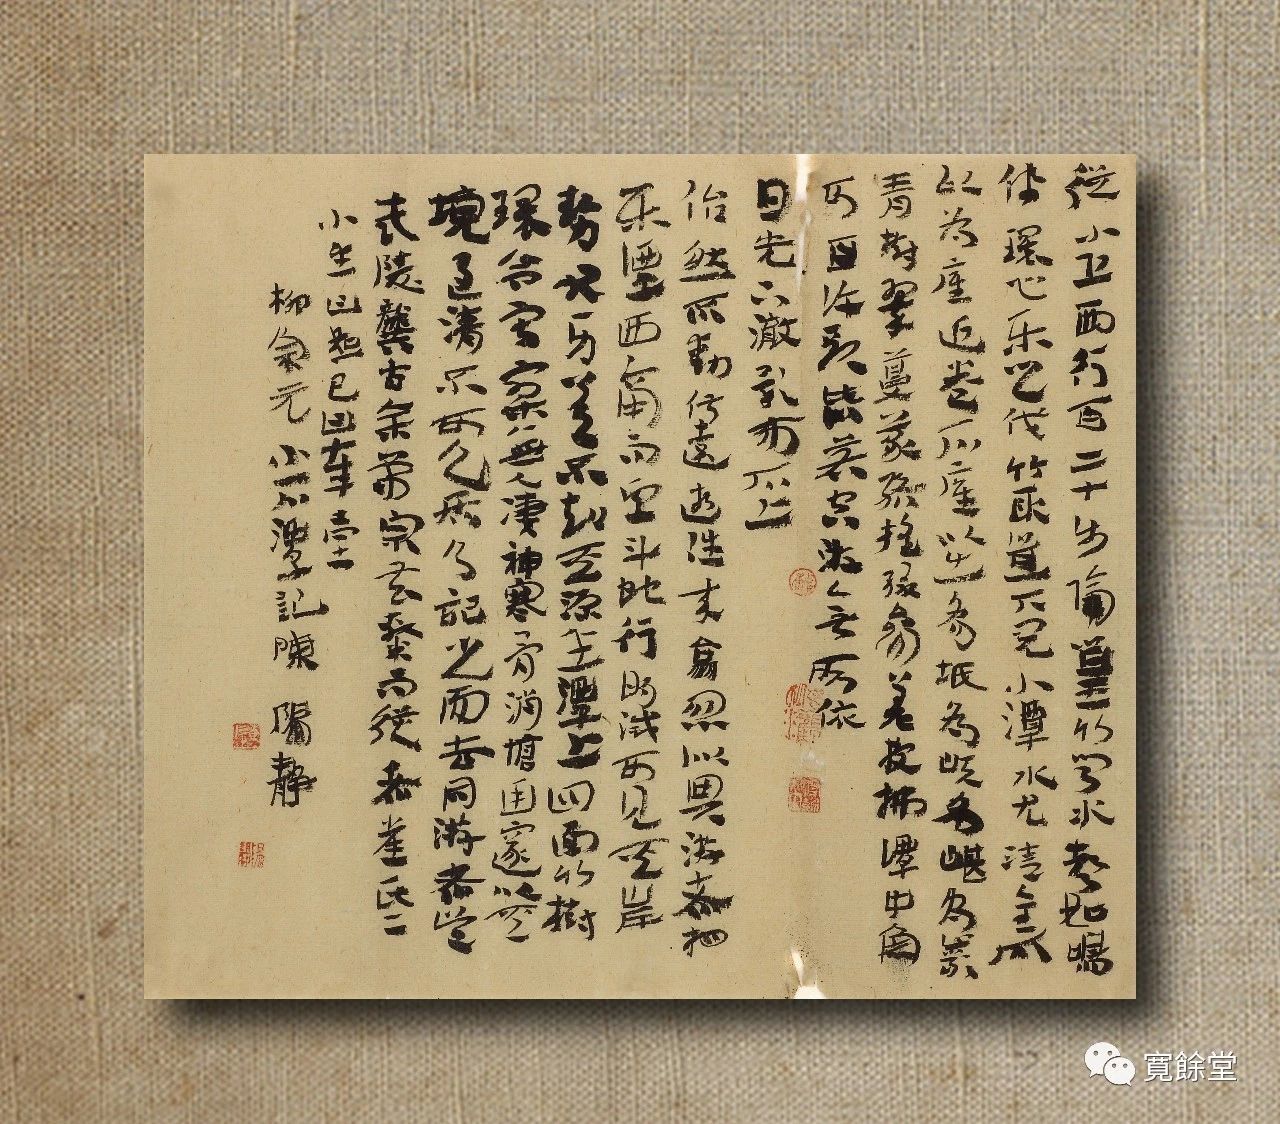 從小丘西行百二十步隔篁竹聞水聲如鳴
佩環心乐之伐竹取道下見小潭水尤清全石
以為底近卷石底以出為坻為屿為嵁為岩
青樹翠蔓蒙絡搖綴參差披拂潭中魚
可百许頭皆若空游无所依
日光下澈影布石上
佁然不動俶遠逝往来翕忽似與游者相
乐潭西南而望斗蛇行明滅可見其岸
勢犬牙差不知其源坐潭上四面竹樹
環合寂寥無人凄神寒骨悄愴幽邃以其
境過清不可久居乃記之而去同游者吴
武陵龔古余弟宗玄隸而從者崔氏二
小生曰恕己曰奉壹
柳宗元小石潭記陳靜
寬餘堂